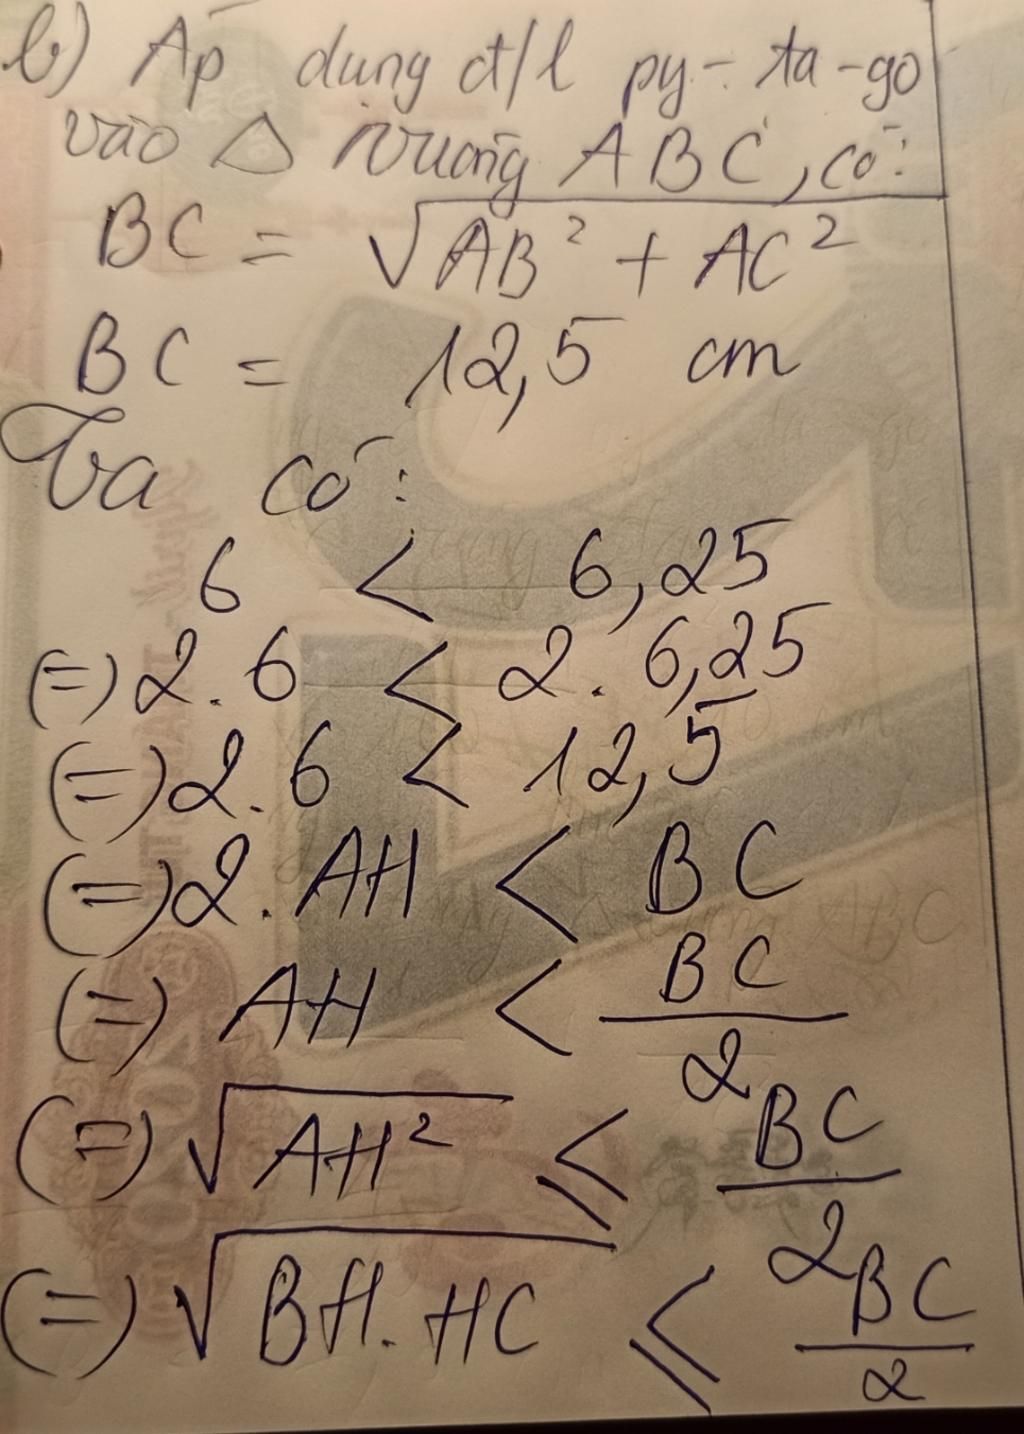 b) Áp dụng đ/l py-ta-go
vào △ vuông ABC, có:
BC = √AB² + AC²
BC = 12,5 cm
Ta có:
6 < 6,25
(=) 2.6 < 2.6,25
(=) 2.6 < 12,5
(=) 2.AH < BC
(=) AH < BC/2
(=) √AH² ≤ BC/2
(=) √BH.HC ≤ BC/2